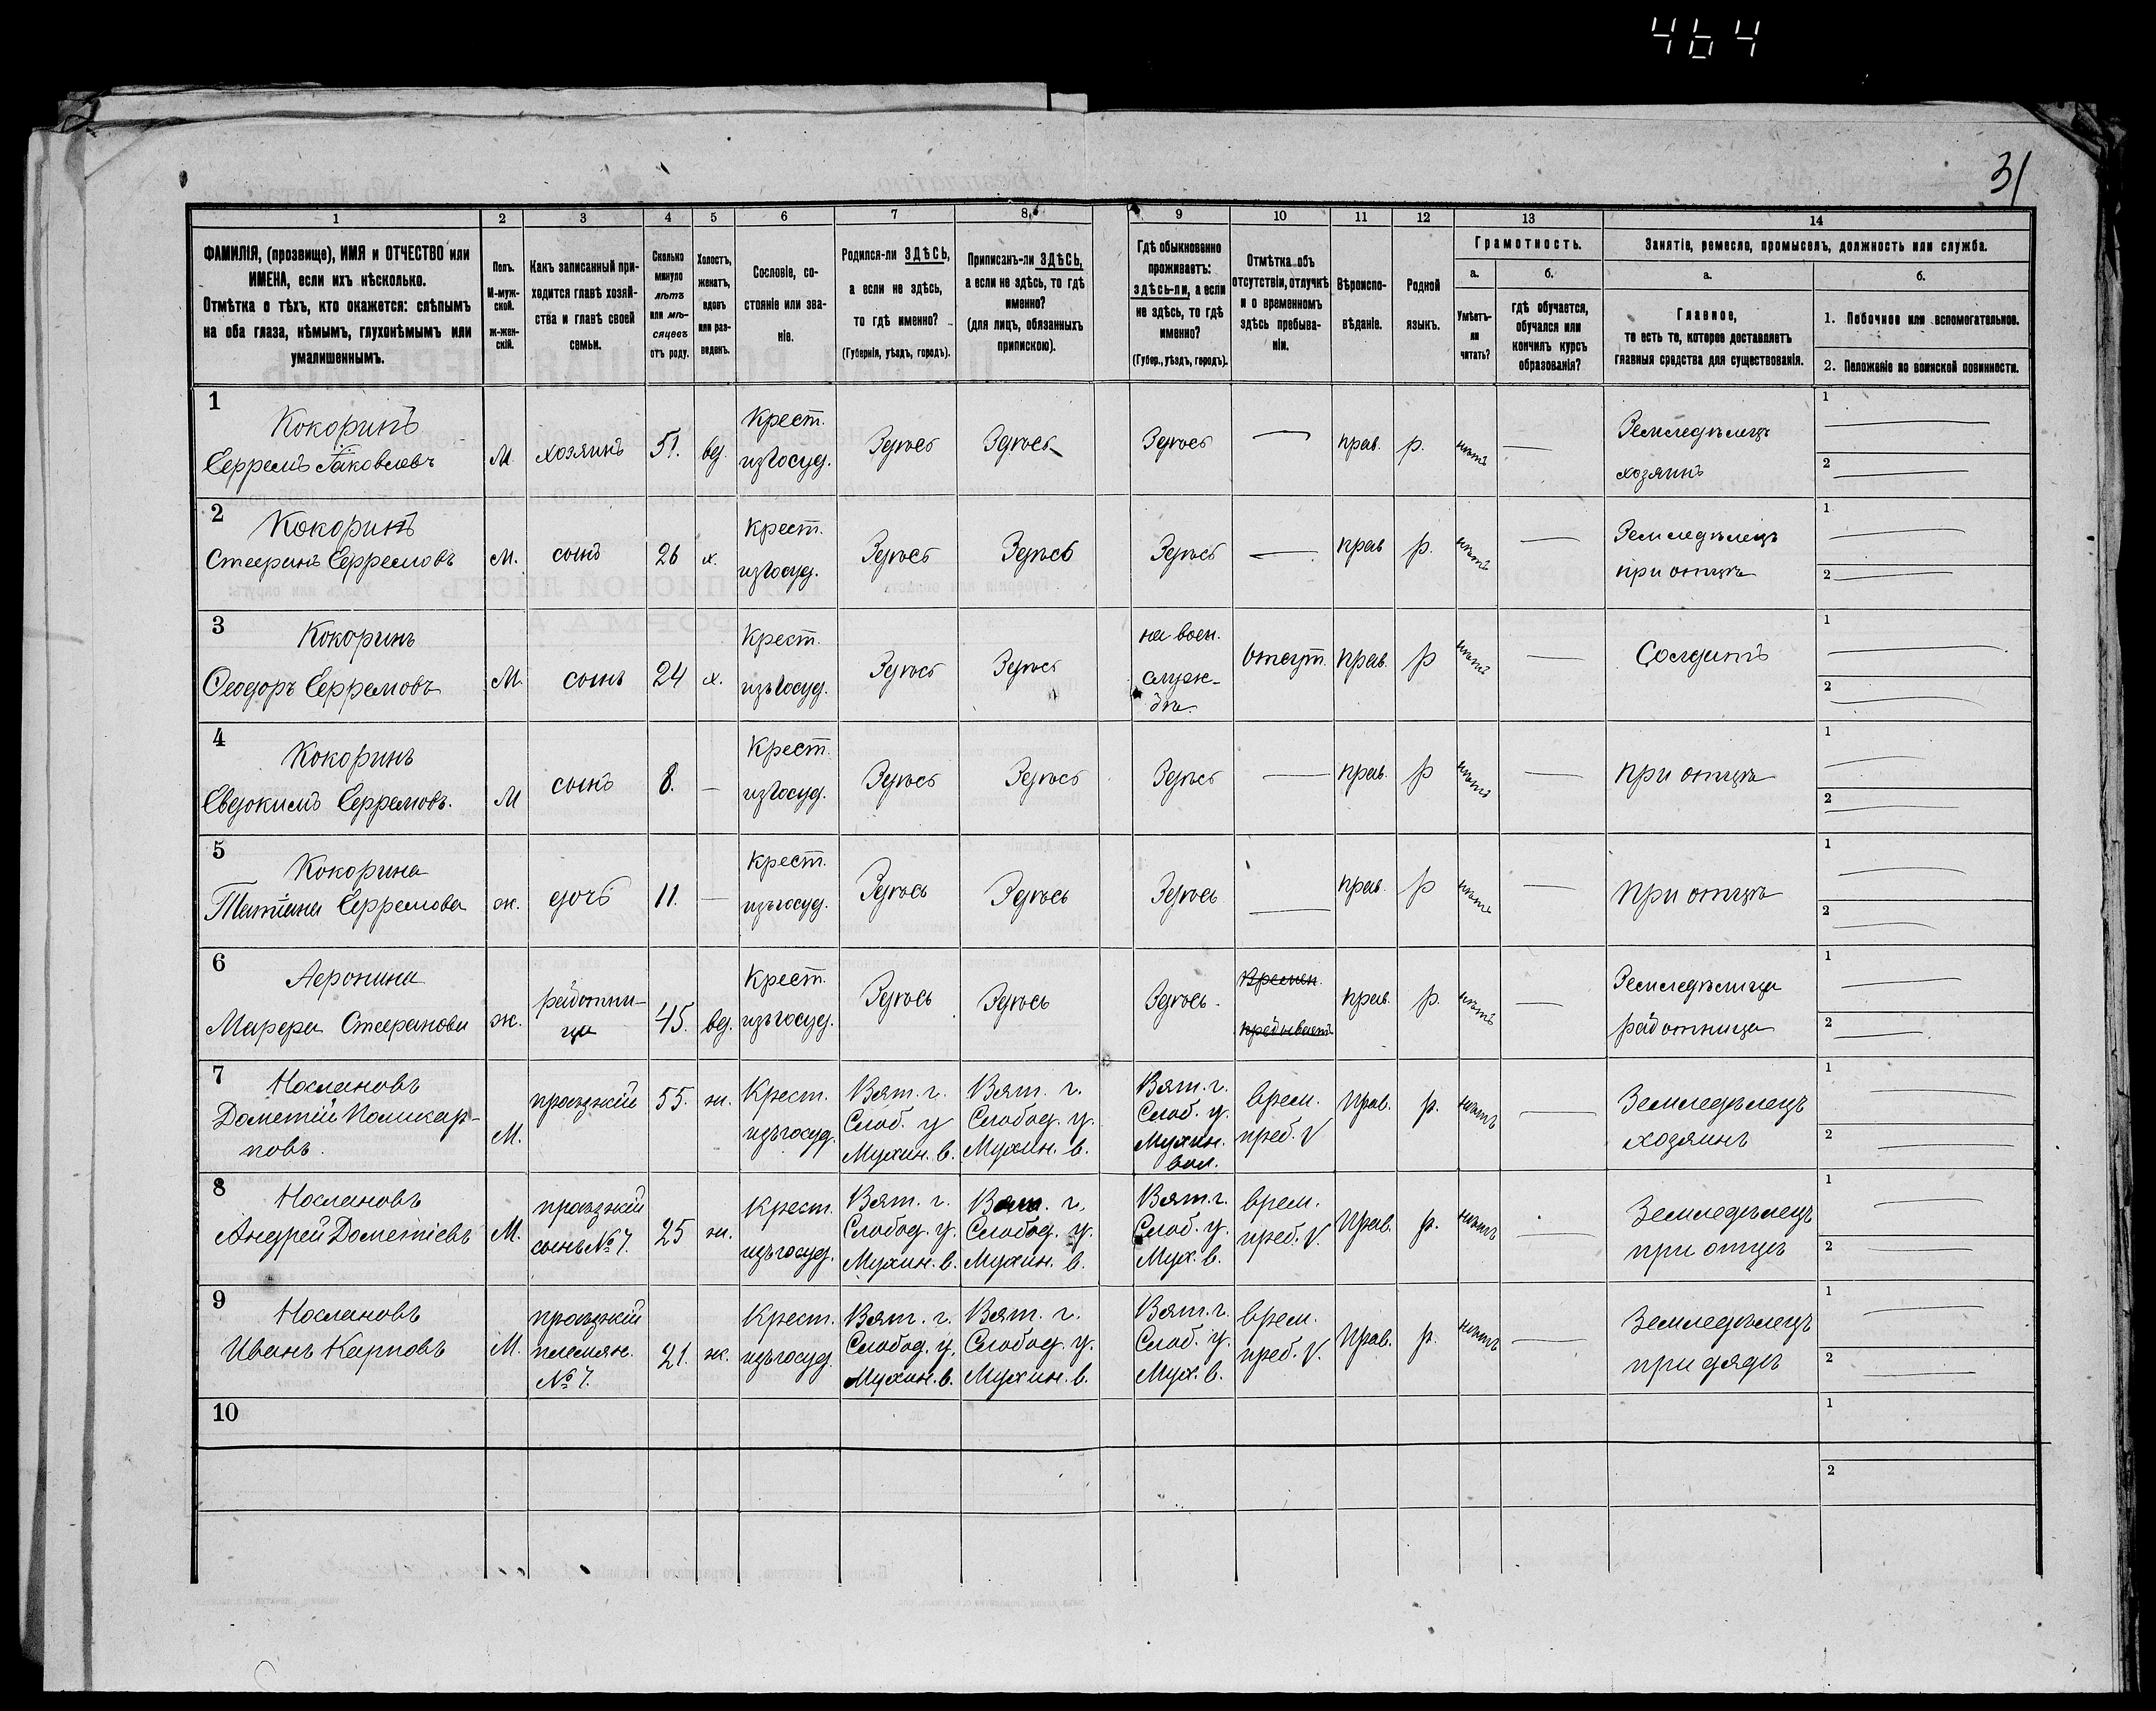 464
31
1 2 3 4 5 6 7 8 9 10 11 12 13 14
ФАМИЛІЯ, (прозвище), ИМЯ и ОТЧЕСТВО или
ИМЕНА, если ихъ нѣсколько.
Отмѣтка о тѣхъ, кто окажется: слѣпымъ
на оба глаза, нѣмымъ, глухонѣмымъ или
умалишеннымъ.
Полъ.
М-муж-
ской.
ж-жен-
скій.
Какъ записанный при-
ходится главѣ хозяй-
ства и главѣ своей
семьи.
Сколько
минуло
лѣтъ
или мѣ-
сяцевъ
отъ роду.
Холостъ,
женатъ,
вдовъ
или раз-
веденъ.
Сословіе, со-
стояніе или зва-
ніе.
Родился-ли ЗДѢСЬ,
а если не здѣсь,
то гдѣ именно?
(Губернія, уѣздъ, городъ).
Приписанъ-ли ЗДѢСЬ,
а если не здѣсь, то гдѣ
именно?
(для лицъ, обязанныхъ
припискою).
Гдѣ обыкновенно
проживаетъ:
здѣсь-ли, а если
не здѣсь, то гдѣ
именно?
(Губер., уѣздъ, городъ).
Отмѣтка объ
отсутствіи, отлучкѣ
и о временномъ
здѣсь пребыва-
ніи.
Вѣроиспо-
вѣданіе.
Родной
языкъ.
Грамотность.
а.
Умѣетъ-
ли
читать?
б.
гдѣ обучается,
обучался или
кончилъ курсъ
образованія?
Занятіе, ремесло, промыселъ, должность или служба.
а.
Главное,
то есть то, которое доставляетъ
главныя средства для существованія.
б.
1. Побочное или вспомогательное.
2. Положеніе по воинской повинности.
1
Кокоринъ
Ефремъ Іаковлевъ
М.
хозяинъ
51.
вд.
Крест.
изъгосуд.
Здѣсь
Здѣсь
Здѣсь
—
прав.
р.
нѣтъ
—
Земледѣлецъ
хозяинъ
1 —
2 —
2
Кокоринъ
Стефанъ Ефремовъ
М.
сынъ
26
х.
Крест.
изъгосуд.
Здѣсь
Здѣсь
Здѣсь
—
прав
р.
нѣтъ
—
Земледѣлецъ
при отцѣ
1 —
2 —
3
Кокоринъ
Ѳеодоръ Ефремовъ
М.
сынъ
24
х.
Крест.
изъгосуд.
Здѣсь
Здѣсь
на воен.
служ-
бѣ.
Отсут.
прав.
р
нѣтъ
—
Солдатъ
1 —
2 —
4
Кокоринъ
Евдокимъ Ефремовъ.
М
сынъ
8.
—
Крест.
изъгосуд.
Здѣсь
Здѣсь
Здѣсь
—
прав.
р
нѣтъ
—
при отцѣ
1 —
2 —
5
Кокорина
Татіана Ефремова
ж.
дочь
11.
—
Крест.
изъгосуд.
Здѣсь
Здѣсь
Здѣсь
—
прав.
р
нѣтъ
—
при отцѣ
1 —
2 —
6
Марфа Стефанова
ж.
работни-
ца
45.
вд.
Крест.
изъгосуд.
Здѣсь
Здѣсь
Здѣсь.
Времен.
пребываетъ
прав.
р.
нѣтъ
—
Земледѣлица
работница
1 —
2 —
7
Дометій Поликар-
повъ.
М.
проѣзжій
55.
ж.
Крест.
изъгосуд.
Вят. г.
Слоб. у
Мухин. в.
Вят. г.
Слобод. у.
Мухин. в.
Вят. г.
Слоб. у.
Мухин.
вол.
врем.
преб. V
Прав.
р.
нѣтъ
—
Земледѣлецъ
хозяинъ
1 —
2 —
8
Андрей Дометіевъ
М.
проѣзжій
сынъ №7.
25
ж.
Крест.
изъгосуд.
Вят. г.
Слобод. у.
Мухин. в.
Вят. г.
Слобод. у.
Мухин. в.
Вят. г.
Слоб. у.
Мух. в.
врем.
преб. V.
Прав.
р.
нѣтъ
—
Земледѣлецъ
при отцѣ
1 —
2 —
9
Иванъ Карповъ
М.
проѣзжій
племян.
№7.
21.
ж.
Крест.
изъгосуд.
Вят. г.
Слобод. у.
Мухин. в.
Вят. г.
Слобод. у.
Мухин. в.
Вят. г.
Слоб. у.
Мух. в.
врем.
преб. V.
Прав.
р.
нѣтъ
—
Земледѣлецъ
при дядѣ
1 —
2 —
10
1
2